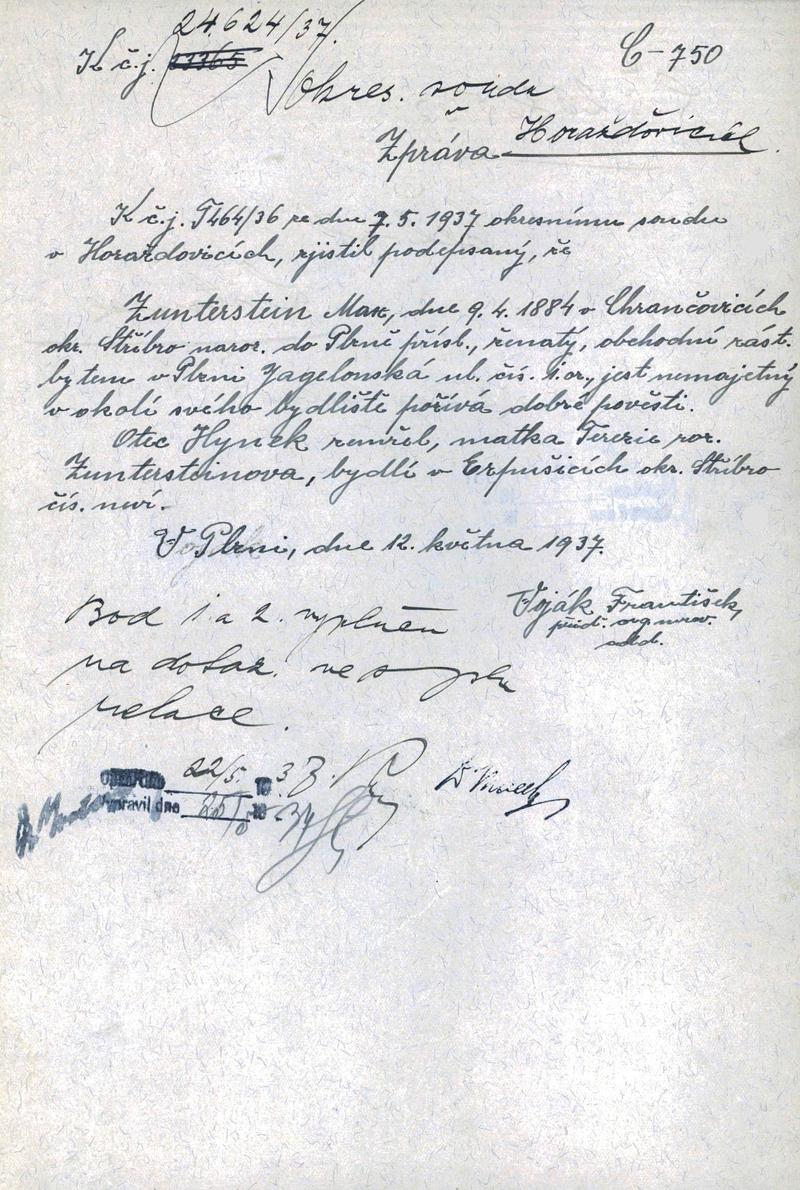 24.624/37
K č.j. 13365 C-750
Okres. soudu
v
Zpráva Horažďovicích.
K č.j. T464/36 ze dne 7. 5. 1937 okresnímu soudu
v Horažďovicích, zjistil podepsaný, že
Zunterstein Max, dne 9. 4. 1884 v Chrančovicích
okr. Stříbro naroz. do Plzně přísl., ženatý, obchodní zást.
bytem v Plzni Jagelonská ul. čís. 1.or., jest nemajetný
v okolí svého bydliště požívá dobré pověsti.
Otec Hynek zemřel, matka Terezie roz.
Zuntersteinova, bydlí v Erpušicích okr. Stříbro
čís. neví.
V Plzni, dne 12. května 1937.
Voják František,
přid.
Bod 1 a 2. vyplněn
na dotaz. ve
relace.
22/5. 19 37
vypravil dne 25/5 19 37